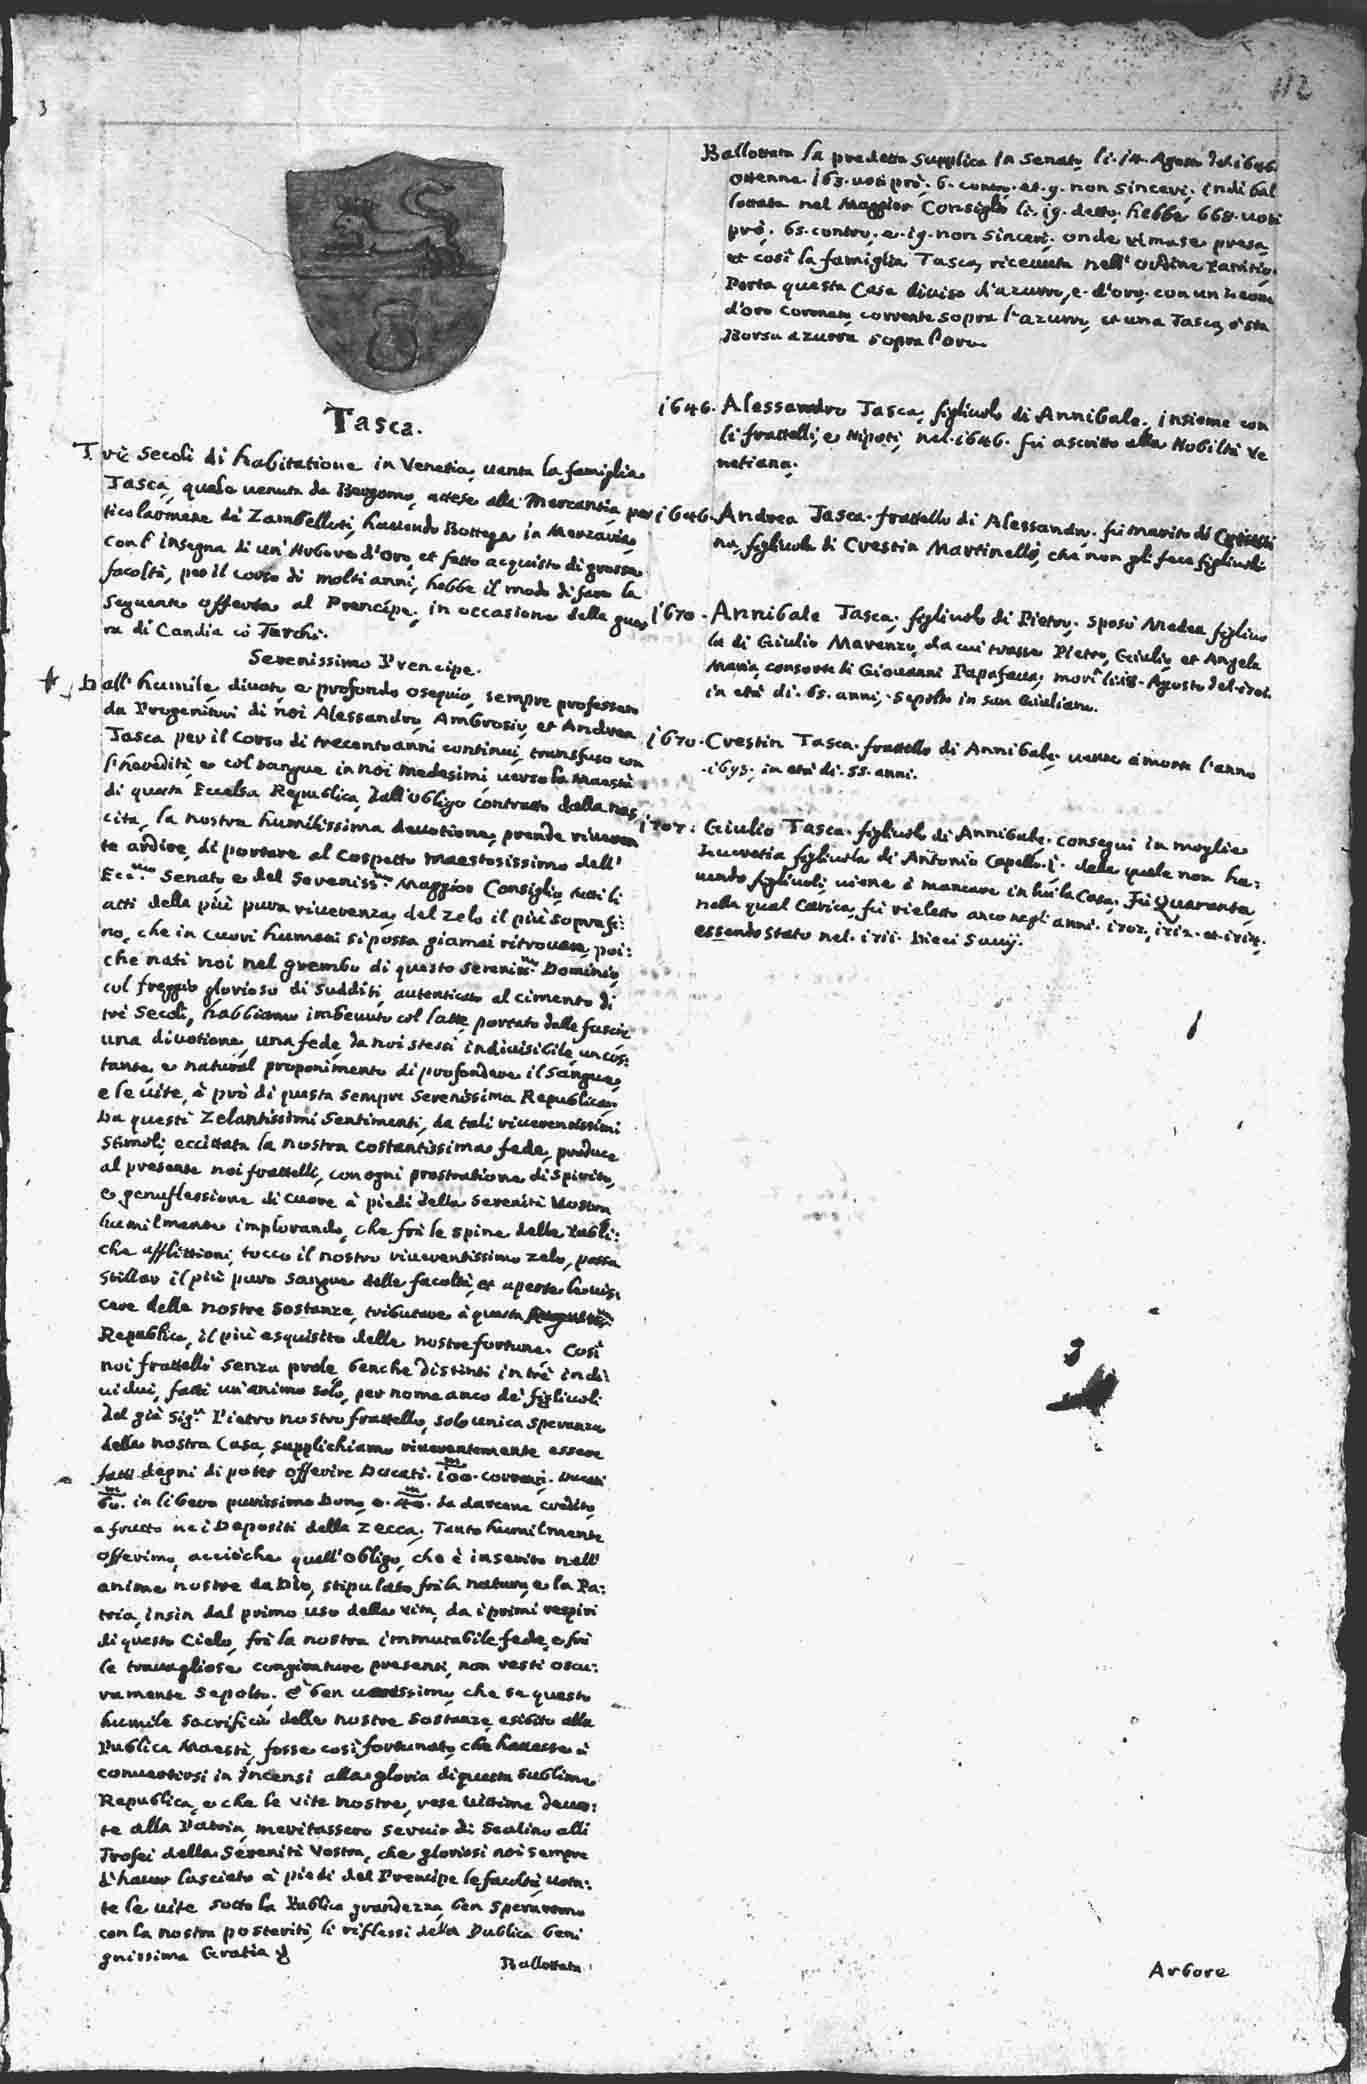 112
3
Tasca.
Trè Secoli di habitatione in Venetia, uanta la famiglia
Tasca, quale uenuta da Bergomo, attese alla Mercantia, par
ticolarmente de Zambellotti, hauendo Bottega in Merzaria,
con l'insegna di un' Rovere d'oro, et fatto acquisto di grosse
facoltà, per il corso di molti anni, hebbe il modo di fare la
seguente offerta al Prencipe, in occasione della guer
ra di Candia cò Turchi.
Serenissimo Prencipe.
Dall' humile, diuoto, e profondo osequio, sempre professato
da Progenitori di noi Alessandro, Ambrosio, et Andrea
Tasca per il corso di trecento anni continui, transfuso con
l'heredità, e col sangue in noi medesimi uerso la Maestà
di questa Eccelsa Republica, dall'obligo contratto dalla nas
cita, la nostra humilissima deuotione, prende riueren
te ardire, di portare al Cospetto maestosissimo dell'
Ecc.mo Senato, e del Sereniss.mo Maggior Consiglio, tutti li
atti della più pura riuerenza, del zelo il più soprafi:
no, che in Cuori humani si possa giamai ritrouare, poi:
che nati noi nel grembo di questo Sereniss.mo Dominio,
col freggio glorioso di Sudditi, autenticato al cimento di
trè Secoli, habbiamo imbeuuto col latte, portato dalle fascie
una diuotione, una fede, da noi stessi indiuisibile, un cos:
tante, e natural proponimento di profondere il sangue,
e le uite, à prò di questa sempre Serenissima Republica.
Da questi Zelantissimi Sentimenti, da tali riuerentissimi
Stimoli, eccittata la nostra costantissima fede, produce
al presente noi frattelli, con ogni prostratione di Spirito,
e genuflessione di Cuore à piedi della Serenità Vostra
humilmente implorando, che frà le spine delle Publi:
che afflittioni, tocco il nostro riuerentissimo zelo, possa
stillar il più puro sangue delle facoltà, et aperte le uis:
cere delle nostre Sostanze, tributare à questa Augustis.ma
Republica, il più esquisito delle nostre fortune. Così
noi frattelli senza prole, benche distinti in trè indi:
uidui, fatti un'animo solo, per nome anco de' figliuoli
del già Sig.r Pietro nostro frattello, solo unica speranza
della nostra Casa, supplichiamo riuerentemente essere
fatti degni di poter offerire Ducati. 100.m correnti. Ducati
60.m in libero purissimo Dono, e. 40.m da darcene credito,
e frutto ne i Depositi della Zecca. Tanto humilmente
offerimo, acciòche quell'obligo, che è inserito nell'
anime nostre da Dio, stipulato frà la natura, e la Pa:
tria, insin dal primo uso della vita, da i primi respiri
di questo Cielo, frà la nostra immutabile fede, e frà
le trauagliose congionture presenti, non resti oscu:
ramente sepolto. è ben uerissimo, che se questo
humile sacrificio delle nostre Sostanze, esibito alla
Publica Maestà, fosse così fortunato, che hauesse à
conuertirsi in Incensi alla gloria di questa sublime
Republica, e che le vite nostre, rese uittime deuo:
te alla Patria, meritassero seruir di Scalino alli
Trofei della Serenità Vostra, che gloriosi noi sempre
d'hauer lasciato à piedi del Prencipe le facoltà, uota:
te le uite sotto la Publica grandezza, ben speraremo
con la nostra posterità, li riflessi della Publica beni
gnissima Gratia
Ballottata
Ballottata la predetta Supplica in Senato, li. 14. Agosto del. 1646.
ottenne. 163. uoti prò. 6. contro. et. 9. non sinceri, indi bal
lottata nel Maggior Consiglio li. 19. detto, hebbe 668. uoti
prò. 65. contro, e. 19. non sinceri. onde rimase presa,
et così la famiglia Tasca, riceuuta nell'ordine Patritio.
Porta questa Casa diuiso d'azurro, e. d'oro, con un Leone
d'oro Coronato, corrente sopra l'azurro, et una Tasca, ò sia
Borsa azurra sopra l'oro.
1646. Alessandro Tasca, figliuolo di Annibale. insieme con
li frattelli, e Nipoti, nel. 1646. fù ascritto alla Nobiltà Ve
netiana.
1646. Andrea Tasca. frattello di Alessandro. fù marito di Cristi
na, figliuola di Crestin Martinelli, che non gli fece figliuoli
1670. Annibale Tasca, figliuolo di Pietro, sposò Medea figliuo
la di Giulio Marenzo, da cui trasse Pietro, Giulio, et Angela
Maria, consorte di Giouanni Papafaua, morì li. 18. Agosto del. 1701.
in età di. 65. anni, sepolto in san Giuliano.
1670. Crestin Tasca. frattello di Annibale, uenne à morte l'anno
.1693. in età di. 55. anni.
1707. Giulio Tasca. figliuolo di Annibale, conseguì in moglie
Lucretia figliuola di Antonio Capello. i. dalla quale non ha:
uendo figliuoli, uiene à mancare in lui la Casa. Fù Quaranta,
nella qual Carica, fù rieletto anco negli anni. 1707, 1712. et. 1714.
essendo stato nel. 1711. Dieci Sauij.
3
Arbore